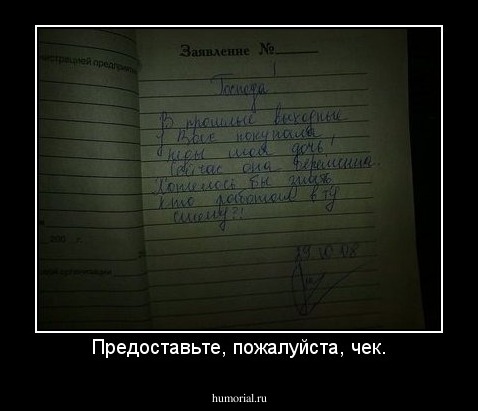 истрацией предприятия
Заявление №
Господа!
В прошлые выходные
у Вас покупала
кеды моя дочь!
Сейчас она беременна.
Хотелось бы знать
кто работал в ту
смену?!
200 г.
организации
29.10.08
Предоставьте, пожалуйста, чек.
humorial.ru